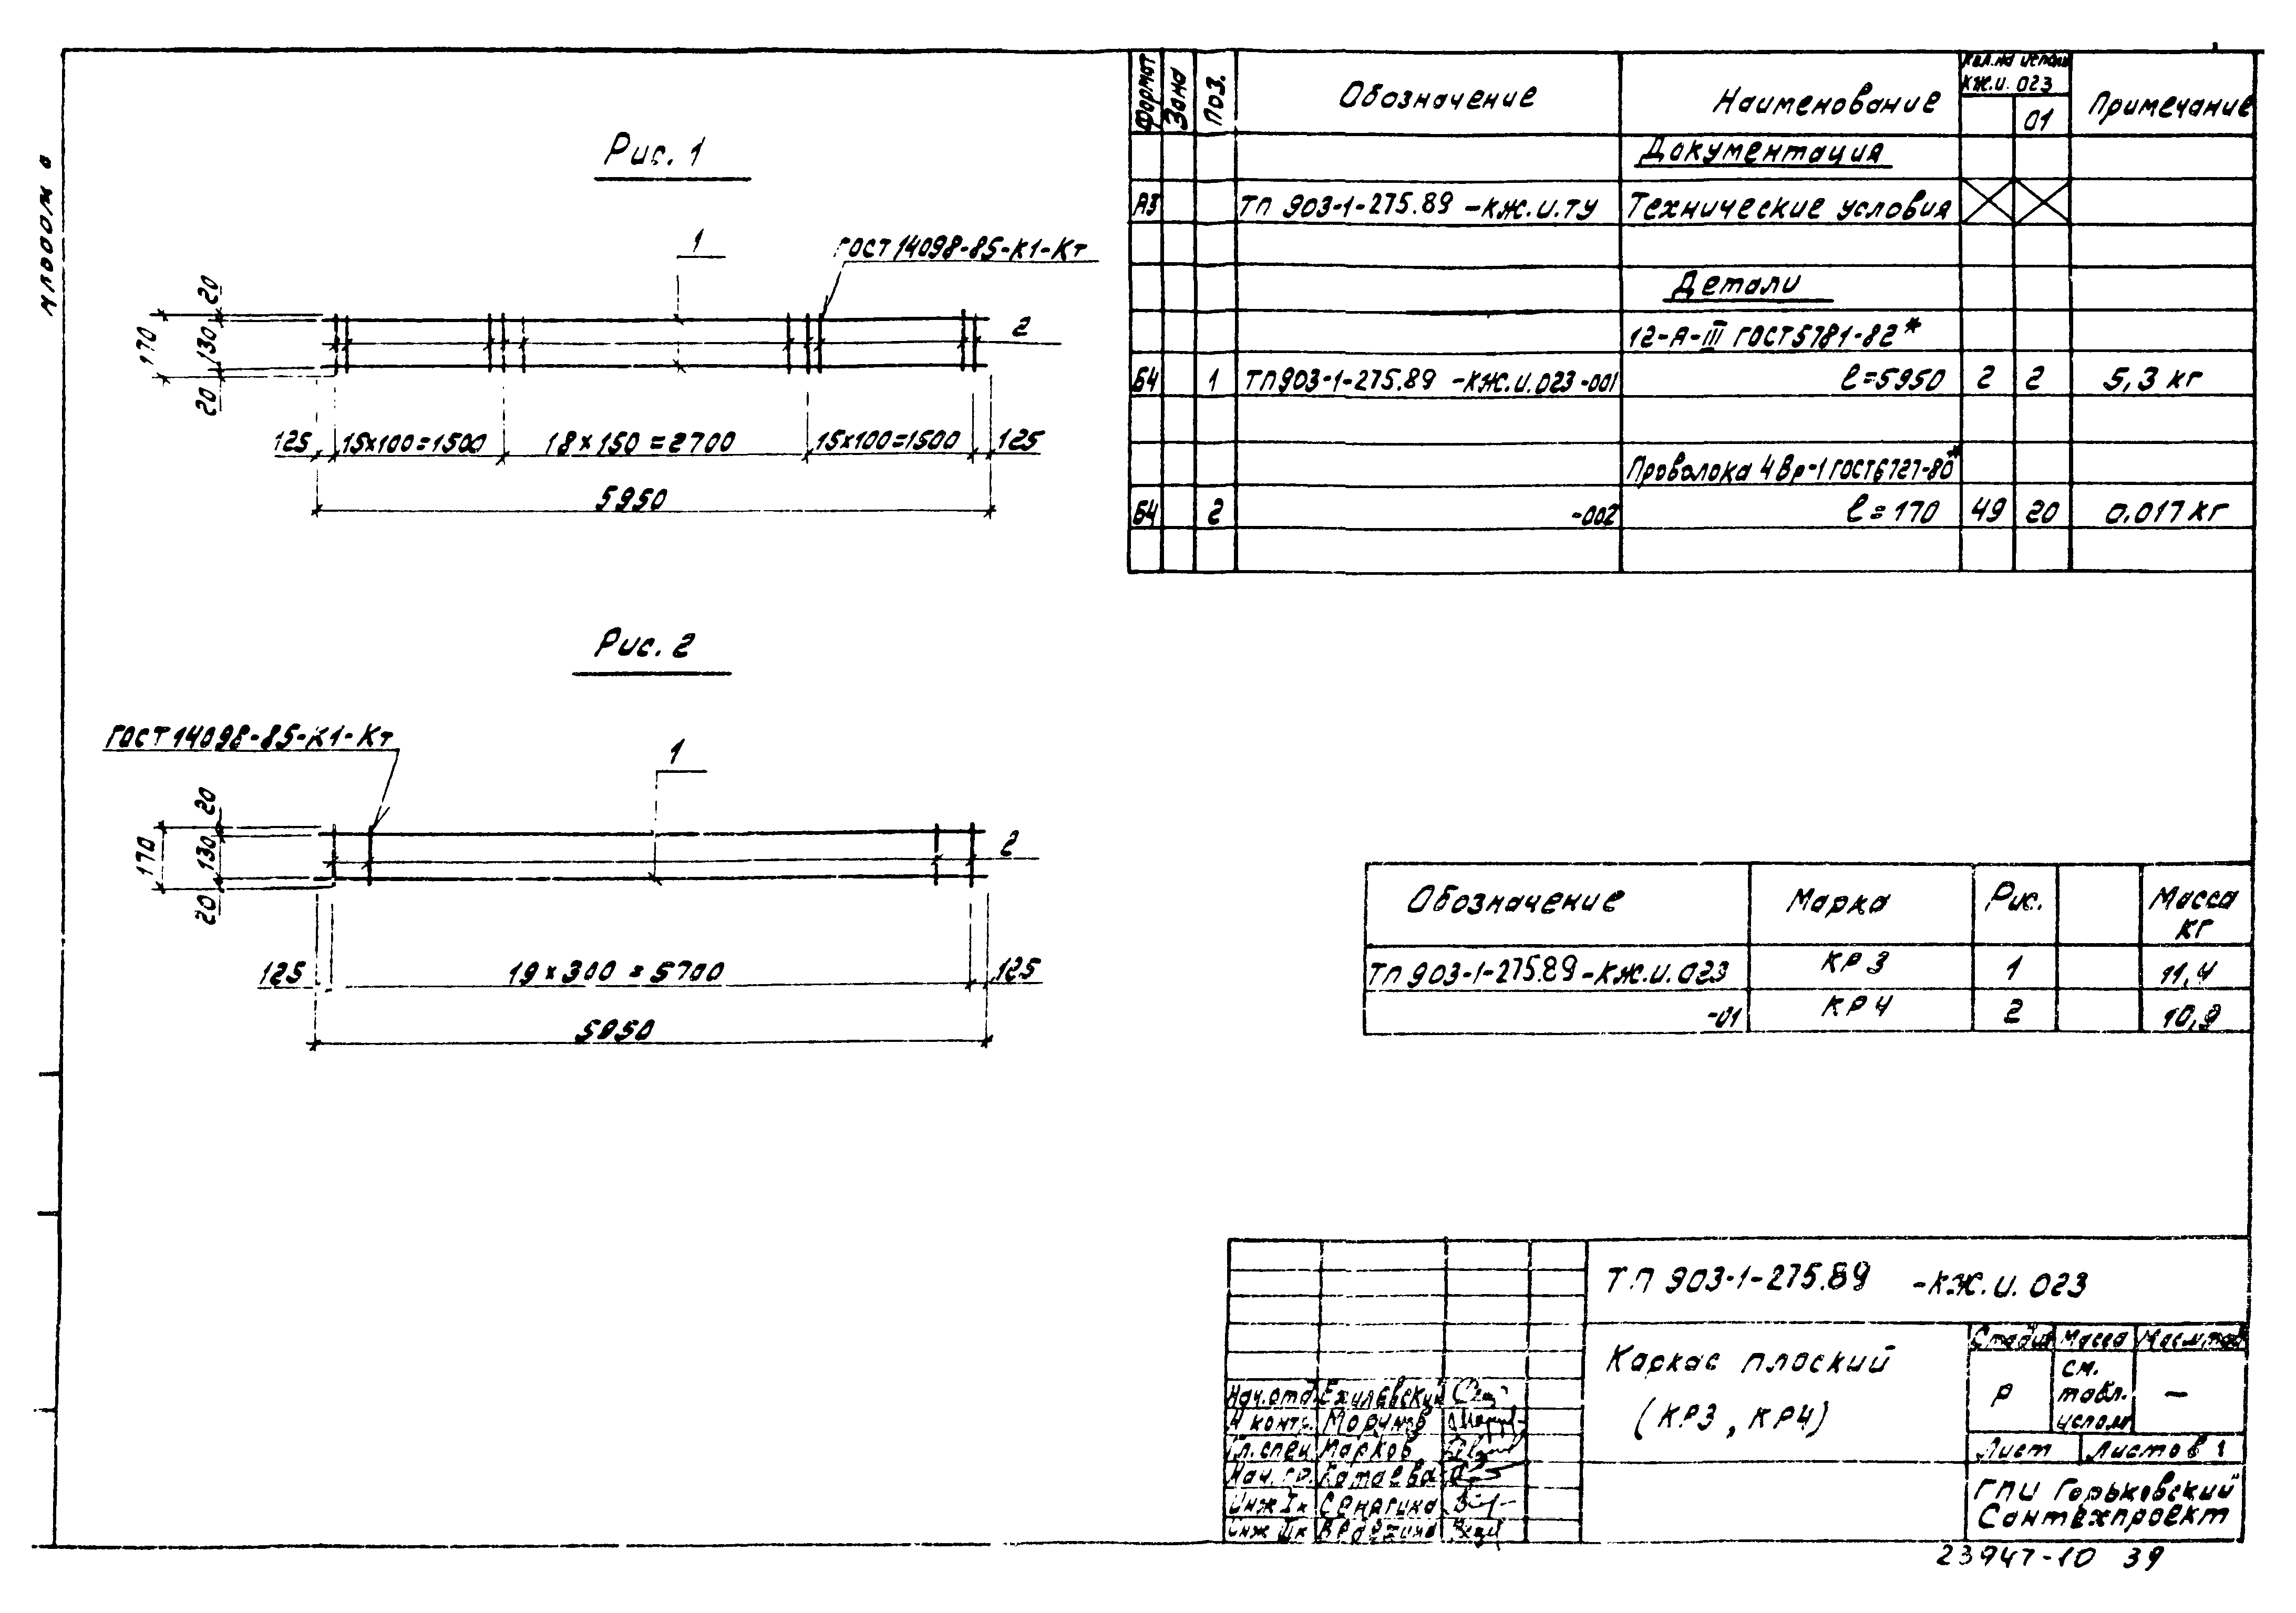 Рис. 1
1
ГОСТ 14098-85-К1-Кт
2
20
130
170
20
125 15×100=1500 18×150=2700 15×100=1500 125
5950
Рис. 2
ГОСТ 14098-85-К1-Кт
1
2
20
130
170
20
125 19×300=5700 125
5950
Формат Зона Поз. Обозначение Наименование Кол. на исполн. КЖ.И.023 Примечание
01
Документация
А3 ТП 903-1-275.89 -КЖ.И.ТУ Технические условия
Детали
12-А-III ГОСТ 5781-82*
Б4 1 ТП 903-1-275.89 -КЖ.И.023-001 ℓ=5950 2 2 5,3 кг
Проволока 4Вр-1 ГОСТ 6727-80*
Б4 2 -002 ℓ=170 49 20 0.017 кг
Обозначение Марка Рис. Масса
кг
ТП 903-1-275.89-КЖ.И.023 КР3 1 11,4
-01 КР4 2 10,9
ТП 903-1-275.89 -КЖ.И.023
Каркас плоский
(КР3, КР4)
Стадия Масса Масштаб
Р см. табл. исполн —
Лист Листов 1
ГПИ Горьковский
Сантехпроект
Нач.отд
Н контр.
Гл.спец Марков
Нач.гр. Катаева
Инж Iк
Инж IIк
23947-10 39